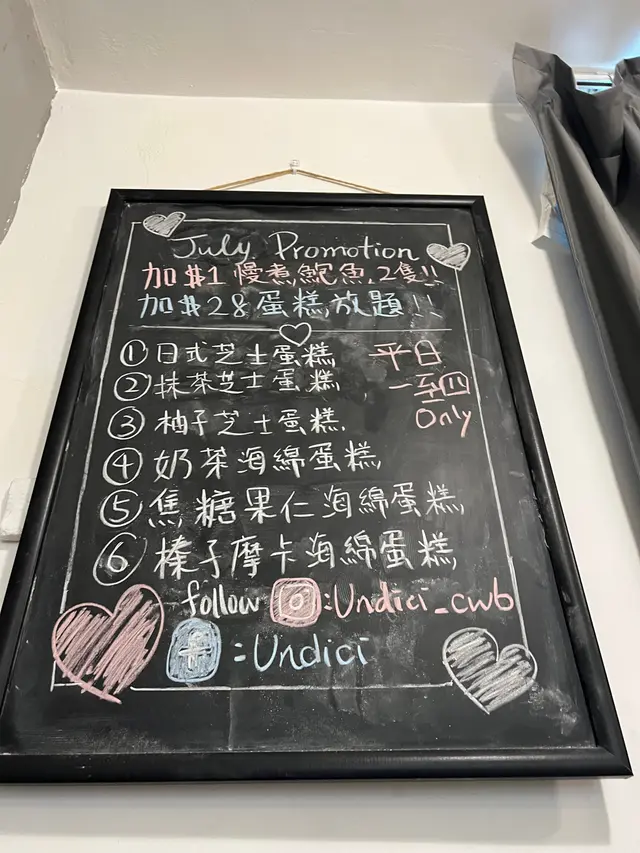 July Promotion
加$1 慢煮鮑魚 2隻!!
加$28蛋糕放題!!
①日式芝士蛋糕 平日
②抹茶芝士蛋糕 一至四
③柚子芝士蛋糕 Only
④奶茶海綿蛋糕
⑤焦糖果仁海綿蛋糕
⑥榛子摩卡海綿蛋糕
follow :Undici_cwb
:Undici